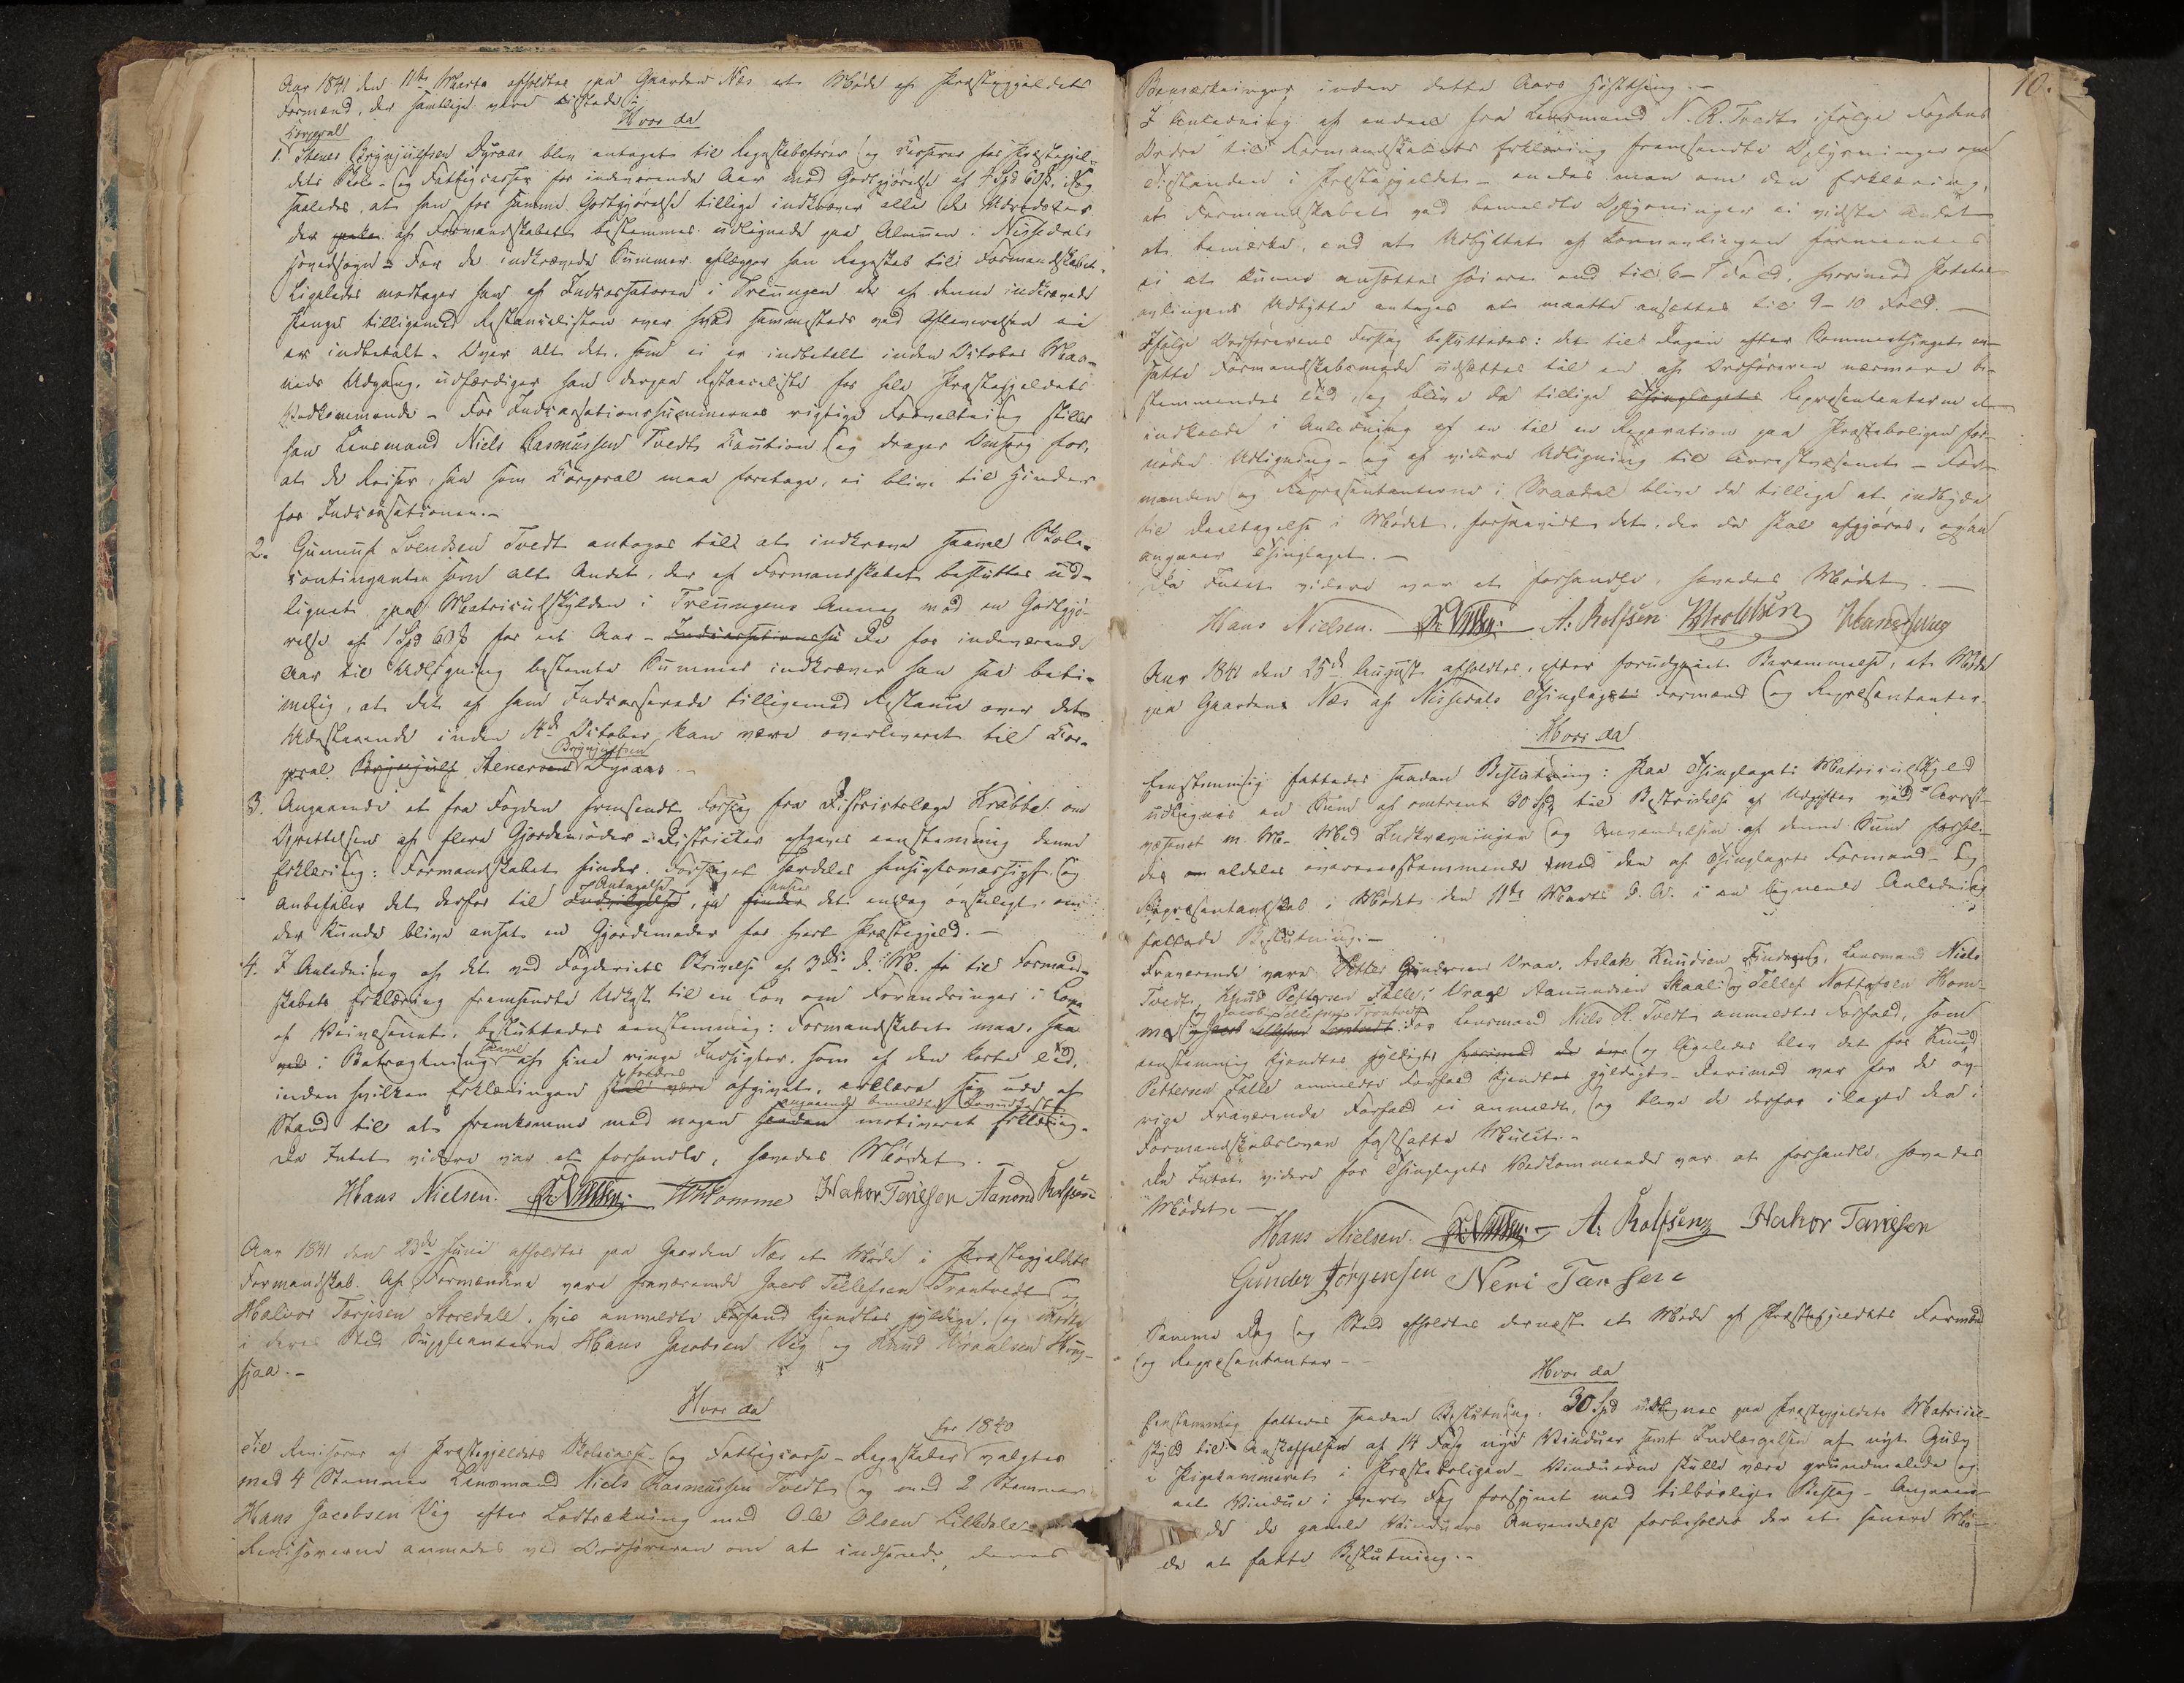 Aar 1841 den 11te Marts afholdtes paa Gaarden Næs et Møde af Præstegjeldets
Formænd, der samtlige vare tilstede:
Hvor da
Korporal
1. Stener Brynjulfsen Dyraas blev antaget til Regnskabsfører og Kasserer for Præstegjel-
dets Skole- og Fattigcasser for indeværende Aar mod Godtgjørelse af
saaledes, at han for samme Godtgjørelse tillige indkræver alle de Udredsler
der af Formandskabet bestemmes udlignede paa Almuen i Nissedals
Hovedsogn - For de indkrævede Summer aflægger han Regnskab til Formandskabet.
Ligeledes modtager han af Indcassatoren i Treungen de af denne indkrævede
Penge tilligemed Restancelisten over hvad sammesteds ved Afleverelsen ei
er indbetalt. Over alt det, som ei er indbetalt inden October Maa-
neds Udgang, udfærdiger han derpaa Restanceliste for hele Præstegjeldets
Vedkommende - For Indcassationssummernes rigtige Forvaltning stiller
han Lensmand Niels Rasmussen Tvedt Caution og drager Omsorg for,
at de Reiser, han som Korporal maa foretage, ei blive til Hinder
for Indcassationen.-
2. Gunnuf Svendsen Tvedt antages til at indkræve saavel Skole-
contingenten som alt Andet, der af Formandskabet besluttes ud-
lignet paa Matriculskylden i Treungens Annex mod en Godtgjø-
relse af 1 Spd 60 ß for et Aar - De for indeværende
Aar til Udligning bestemte Summer indkræver han saa beti-
melig, at det af ham Indcasserede tilligemed Restance over det
Udestaaende inden 14de October kan være overleveret til Kor-
Brynjulfsen
poral Brynjulf Stener Dyraas
3. Angaaende et fra Fogden fremsendt Forslag fra Districtslæge Krabbe om
Oprettelsen af flere Gjordemoder-Districter afgaves eenstemmig denne
Erklæring: Formandskabet finder Forslaget særdeles hensigtsmæssigt og
Antagelse anseer
anbefaler det derfor til Indvilgelse, ja finder det endog ønskeligt om
der kunde blive ansat en Gjordemoder for hvert Præstegjeld.-
4. I Anledning af det ved Fogderiets Skrivelse af 3die d. M. fr til Formand-
skabets Erklæring fremsendte Udkast til en Lov om Forandringer i Lov
af Veivæsenet, besluttedes eenstemmig: Formandskabet maa, saa
saavel
vel i Betragtning af sine ringe Indsigter, som af den korte Tid,
fordres
inden hvilken Erklæringen skal være afgivet, erklære sig ude af
angaaende bemeldte Lovudkast
Stand til at fremkomme med nogen saadan motiveret Erklæring.
Da Intet videre var at forhandle, hævedes Mødet.-
Hans Nielsen. Homme Halvor Terjesen Aanond Rolfsen
Aar 1841 den 23de Juni afholdtes paa Gaarden Næs et Møde i Præstegjeldets
Formandskab. Af Formændene vare fraværende Jacob Tellefsen Trontvedt og
Halvor Terjesen Storedale, hvis anmeldte Forfald kjendtes gyldige, og mødte
i deres Sted Suppleanterne Hans Jacobsen Vig og Knud Vraalsen Haug-
sjaa.-
Hvor da
for 1840
Til Revisorer af Præstegjeldets Skolecasse- og Fattigcasse-Regnskaber valgtes
med 4 Stemmer Lensmand Niels Rasmussen Tvedt og med 2 Stemmer
Hans Jacobsen Vig efter Lodtrækning med Ole Olsen Lilledale
Revisorerne anmodes ved Ordføreren om at indsende deres
10.
Bemærkninger inden dette Aars Høstthing.-
I Anledning af endeel fra Lensmand N. R. Tvedt ifølge Fogdens
Ordre til Formandskabets Erklæring fremsendte Oplysninger om
Tilstanden i Præstegjeldet - enedes man om den Erklæring,
at Formandskabet ved bemeldte Oplysninger ei vidste Andet
at bemærke, end at Udbyttet af Kornavlingen formeentes
ei at kunne ansættes høiere end til 6-7 Fold, hvorimod Potetes-
avlingens Udbytte antoges at maatte ansættes til 9-10 Fold.-
Ifølge Ordførerens Forslag besluttedes: det til Dagen efter Sommerthinget an-
satte Formandskabsmøde udsættes til en af Ordføreren nærmere be-
stemmendes Tid, og blive da tillige Thinglagets Repræsentanterne at
indkalde i Anledning af en til en Reparation paa Præsteboligen for-
nøden Udligning - og af videre Udligning til Arrestvæsenet - For-
manden og Repræsentanterne i Vraadal blive da tillige at indbyde
til Deeltagelse i Mødet, forsaavidt det, der da skal afgjøres, ogsaa
angaaer Thinglaget.-
Da Intet videre var at forhandle, hævedes Mødet.-
Hans Nielsen. A: Rolfsen
Aar 1841 den 25de August afholdtes, efter forudgaaet Berammelse, et Møde
paa Gaarden Næs af Nissedals Thinglags Formænd og Repræsentanter.
Hvor da
Eenstemmig fattedes saadan Beslutning: Paa Thinglagets Matriculskyld
udlignes en Sum af omtrent 30 Spd til Bestridelse af Udgifter ved Arrest-
væsenet m. M. Med Indkrævningen og Anvendelsen af denne Sum forhol-
des aldeles overeensstemmende med den af Thinglagets Formand- og
Repræsentantskab i Mødet den 11te Marts d. A. i en lignende Anledning
fattede Beslutning.-
Fraværende vare Petter Gundersen Vraa, Aslak Knudsen Findreng, Lensmand Niels
Tvedt, Knud Pettersen Falle, Vraal Aamundsen Skaali og Tellef Nottolfsen Hom-
Jacob Tellefsen Trontvedt
me For Lensmand Niels R. Tvedt anmeldtes Forfald, som
eenstemmig kjendtes gyldigt og ligeledes blev det for Knud
Pettersen Falle anmeldte Forfald kjendtes gyldigt. Derimod var for de øv-
rige Fraværende Forfald ei anmeldt, og bleve de derfor ilagte den i
Formandskabsloven fastsatte Mulct.-
Da Intet videre for Thinglagets Vedkommende var at forhandle, hævedes
Mødet.-
Hans Nielsen. A: Rolfsen Halvor Terjesen
Gunder Jørgensen Neri Tarjsen
Samme Dag og Sted afholdtes dernæst et Møde af Præstegjeldets Formænd
og Repræsentanter-
Hvor da
Eenstemmig fattedes saadan Beslutning: 30 Spd udlignes paa Præstegjeldets Matricul-
skyld til Anskaffelsen af 14 Fag nye Vinduer samt Indlæggelsen af nyt Gulv
i Pigekammeret i Præsteboligen - Vinduerne skulle være grundmalede og
eet Vindue i hvert Fag forsynet med tilbørlige Beslag - Angaaen-
de de gamle Vinduers Anvendelse forbeholdes der et senere Mø-
de at fatte Beslutning.-